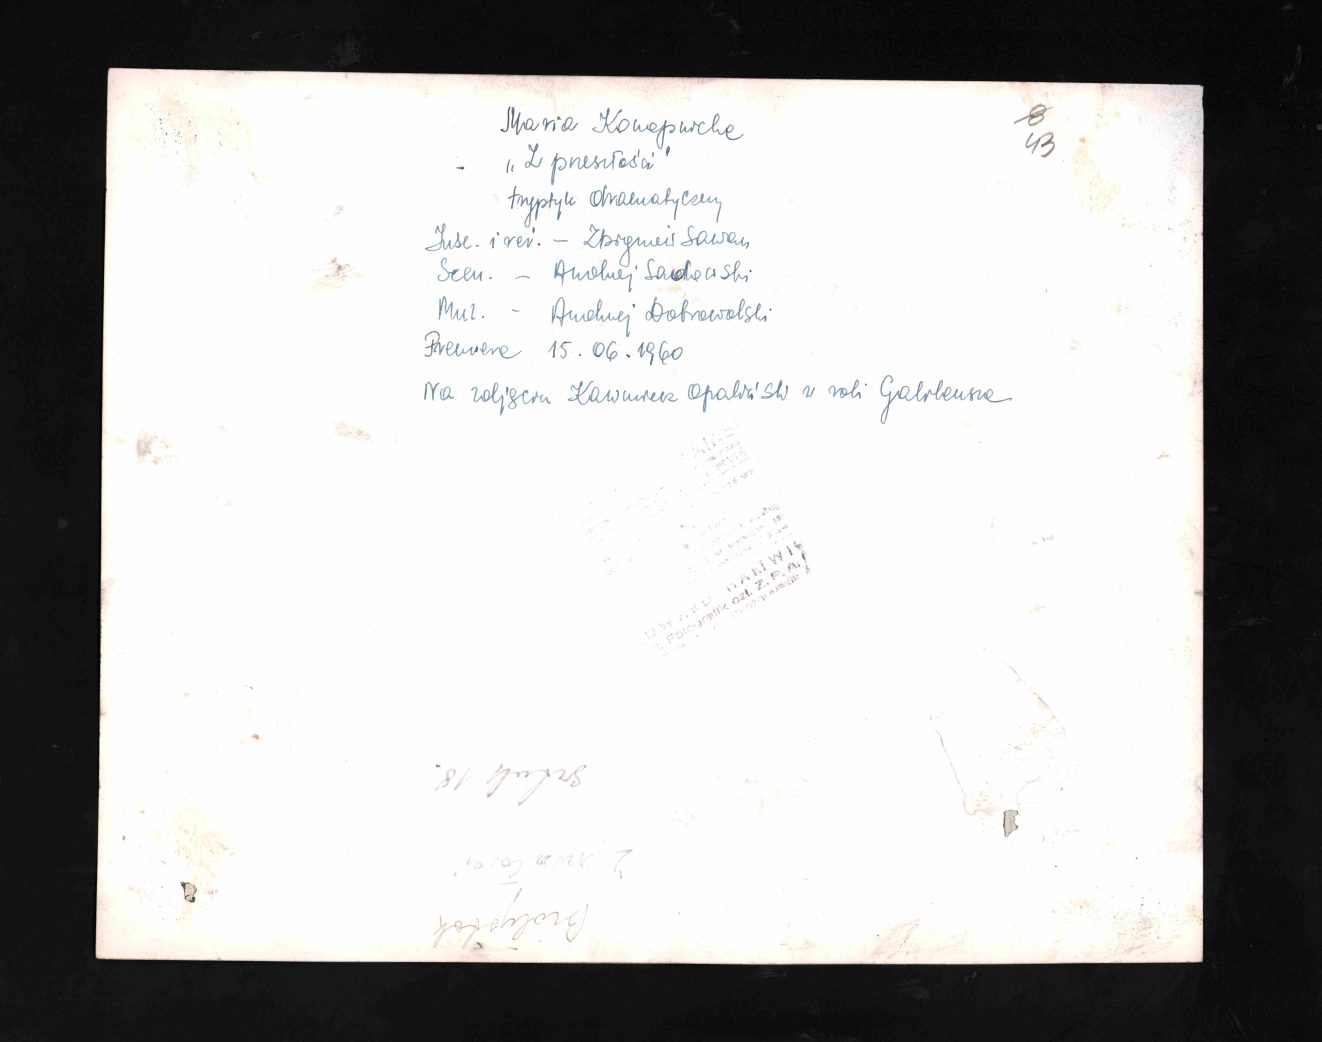 8
43
Maria Konopnicka
„Z przeszłości"
tryptyk dramatyczny
Insc. i reż. – Zbigniew Sawan
Scen. – Andrzej Sadowski
Muz. – Andrzej Dobrowolski
Premiera 15.06.1960
Na zdjęciu Kazimierz Opaliński w roli Galileusza
Fotografik czł. Z. P. A. F
18.
Z przeszłości
Białystok